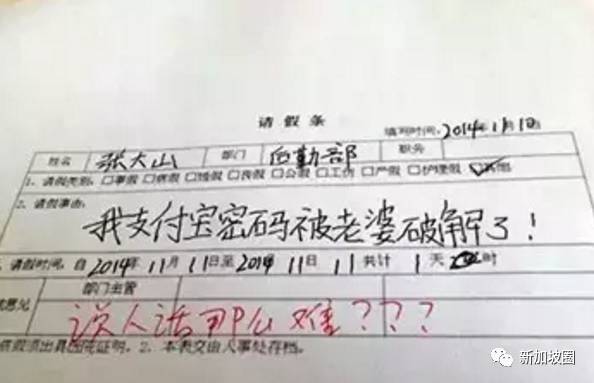 请假条
填写时间：2014年11月10日
姓名 张大山 部门 后勤部 职务
1、请假类别：□事假□病假□婚假□丧假□公假□工伤□产假□护理假☑其他
2、请假事由：
我支付宝密码被老婆破解了！
请假时间：自2014年11月11日至2014年11日11共计1天 时
部门主管
意见
说人话那么难？？？
证明。2、本表交由人事处存档。
新加坡圈